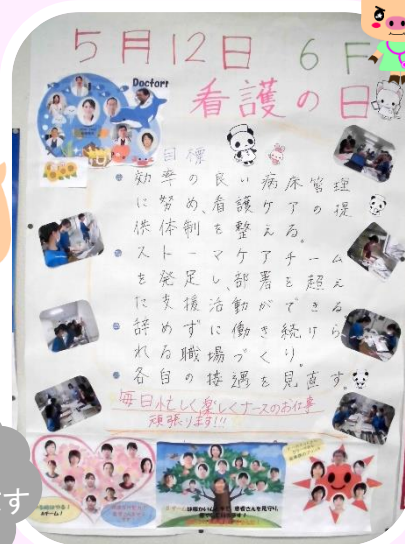 5月12日 6F
看護の日
Doctor!
目標
効率の良い病床管理
に努め、看護ケアの提
供体制を整える。
ストーマケアチーム
を発足し、部署を超え
に支援活動ができる
辞めずに働き続けら
れる職場づくり。
各自の接遇を見直す。
毎日忙しく楽しくナースのお仕事
頑張ります!!!
す